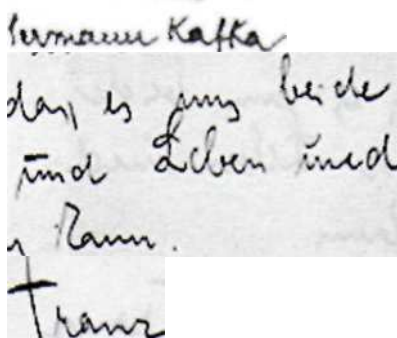 Hermann Kafka
daß es uns beide
und Leben und
n kann.
Franz